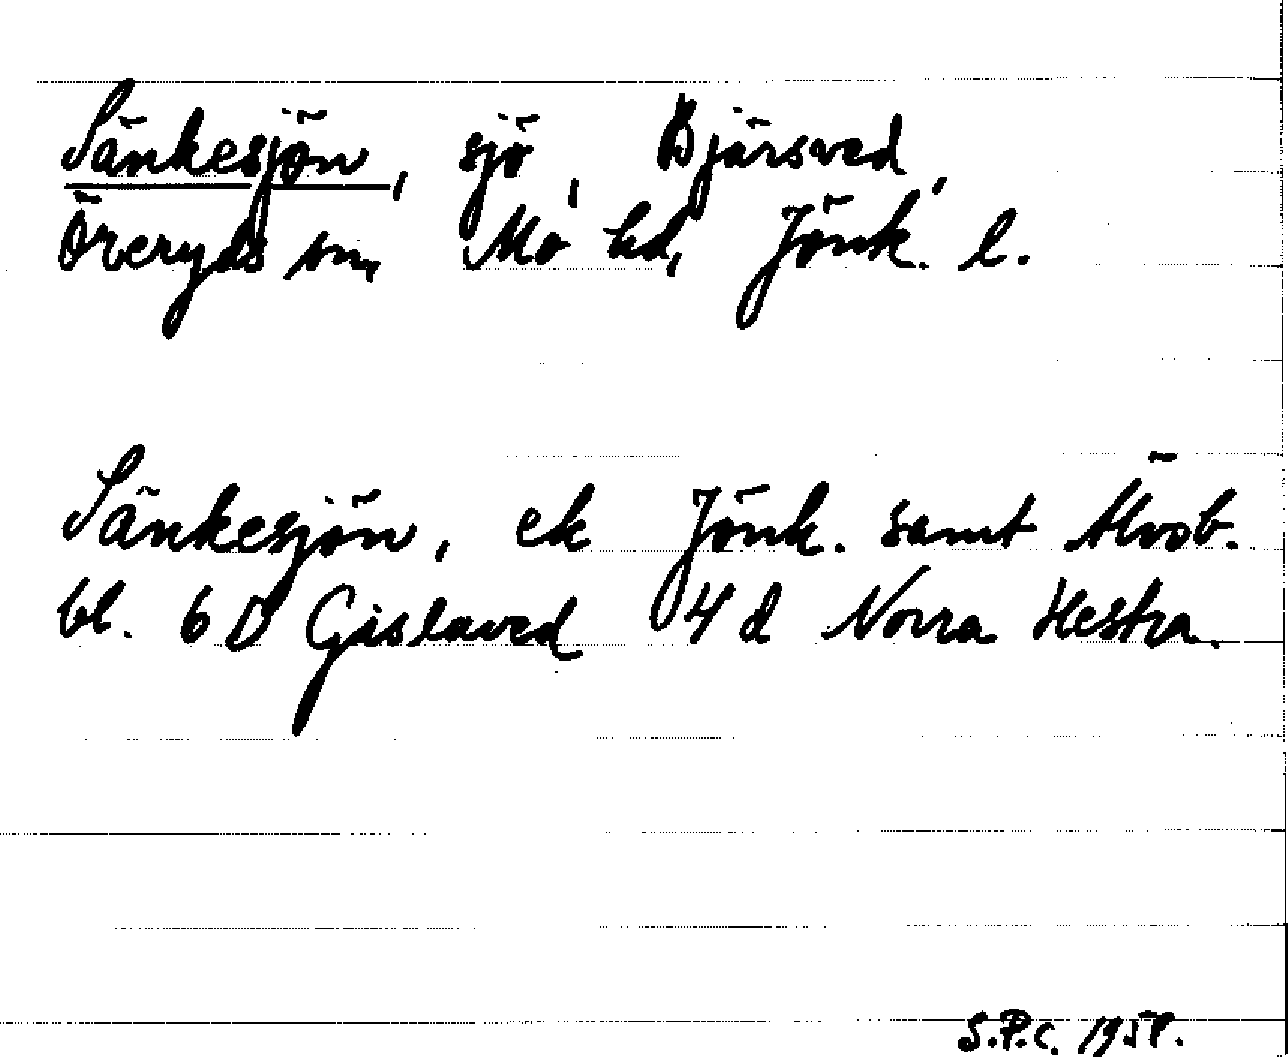 Sänkesjön, sjö, Bjärsved,
Öreryds sn, Mo hd, Jönk. l.
Sänkesjön, ek Jönk. samt Älvsb.
bl. 6 D Gislaved 4 d Norra Hestra.
S.P.C.